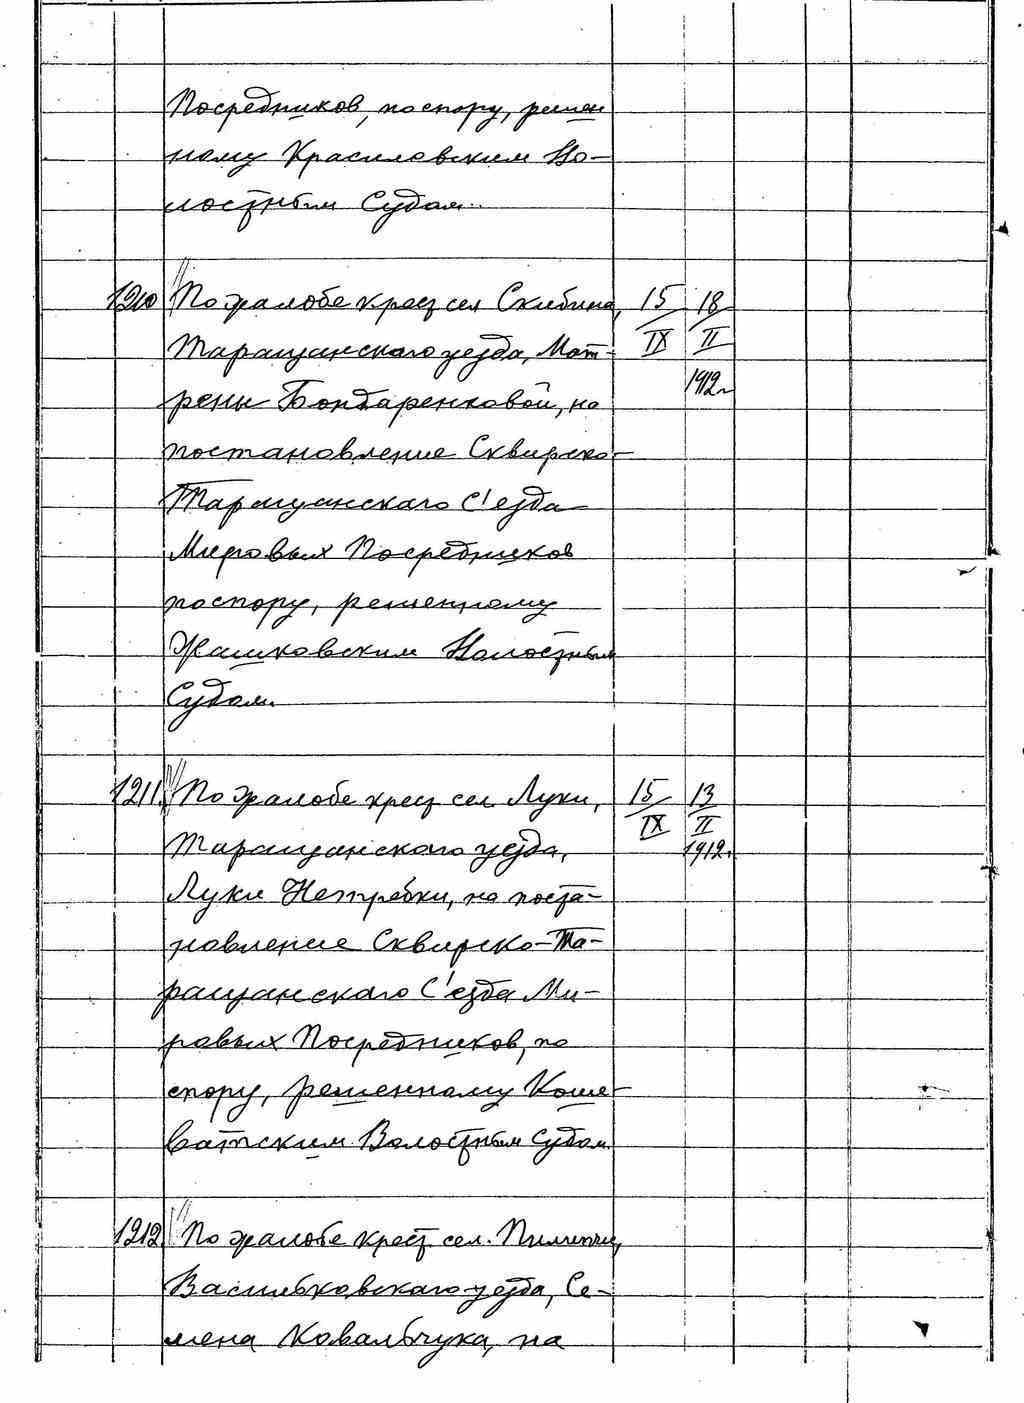 Посредников, по спору, решен
ному Красиловским Во-
лостным Судом.
1210 По жалобе крест сел Скибина, 15/IX 18/II
Таращанского уезда, Мот-
рены Бондаренковой, на 1912г
постановление Сквирско-
Таращанскаго С'езда
Мировых Посредников
по спору, решенному
Жашковским Волостным
Судом.
1211. По жалобе крест сел. Луки, 15/IX 13/II
Таращанского уезда, 1912г.
Луки Нетребки, на поста-
новление Сквирско-Та-
ращанскаго С'езда Ми-
ровых Посредников, по
спору, решенному Коше-
ватским Волостным Судом.
1212. По жалобе крест. сел. Пилипчи,
Васильковскаго уезда, Се-
мена Ковальчука, на